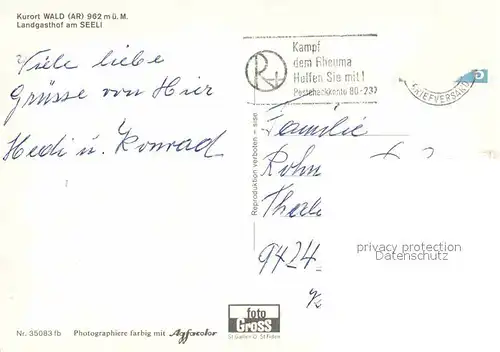 Kurort WALD (AR) 962 m ü. M.
Landgasthof am SEELI
Viele liebe
Grüsse von Hier
Hedi u. Konrad
R+
Kampf
dem Rheuma
Helfen Sie mit!
Postcheckkonto 80-237
BRIEFVERSAND
Familie
Rohn
9424
privacy protection
Datenschutz
Reproduktion verboten - sise
foto
Gross
St.Gallen O St.Fiden
Nr. 35083 fb
Photographiere farbig mit Agfacolor